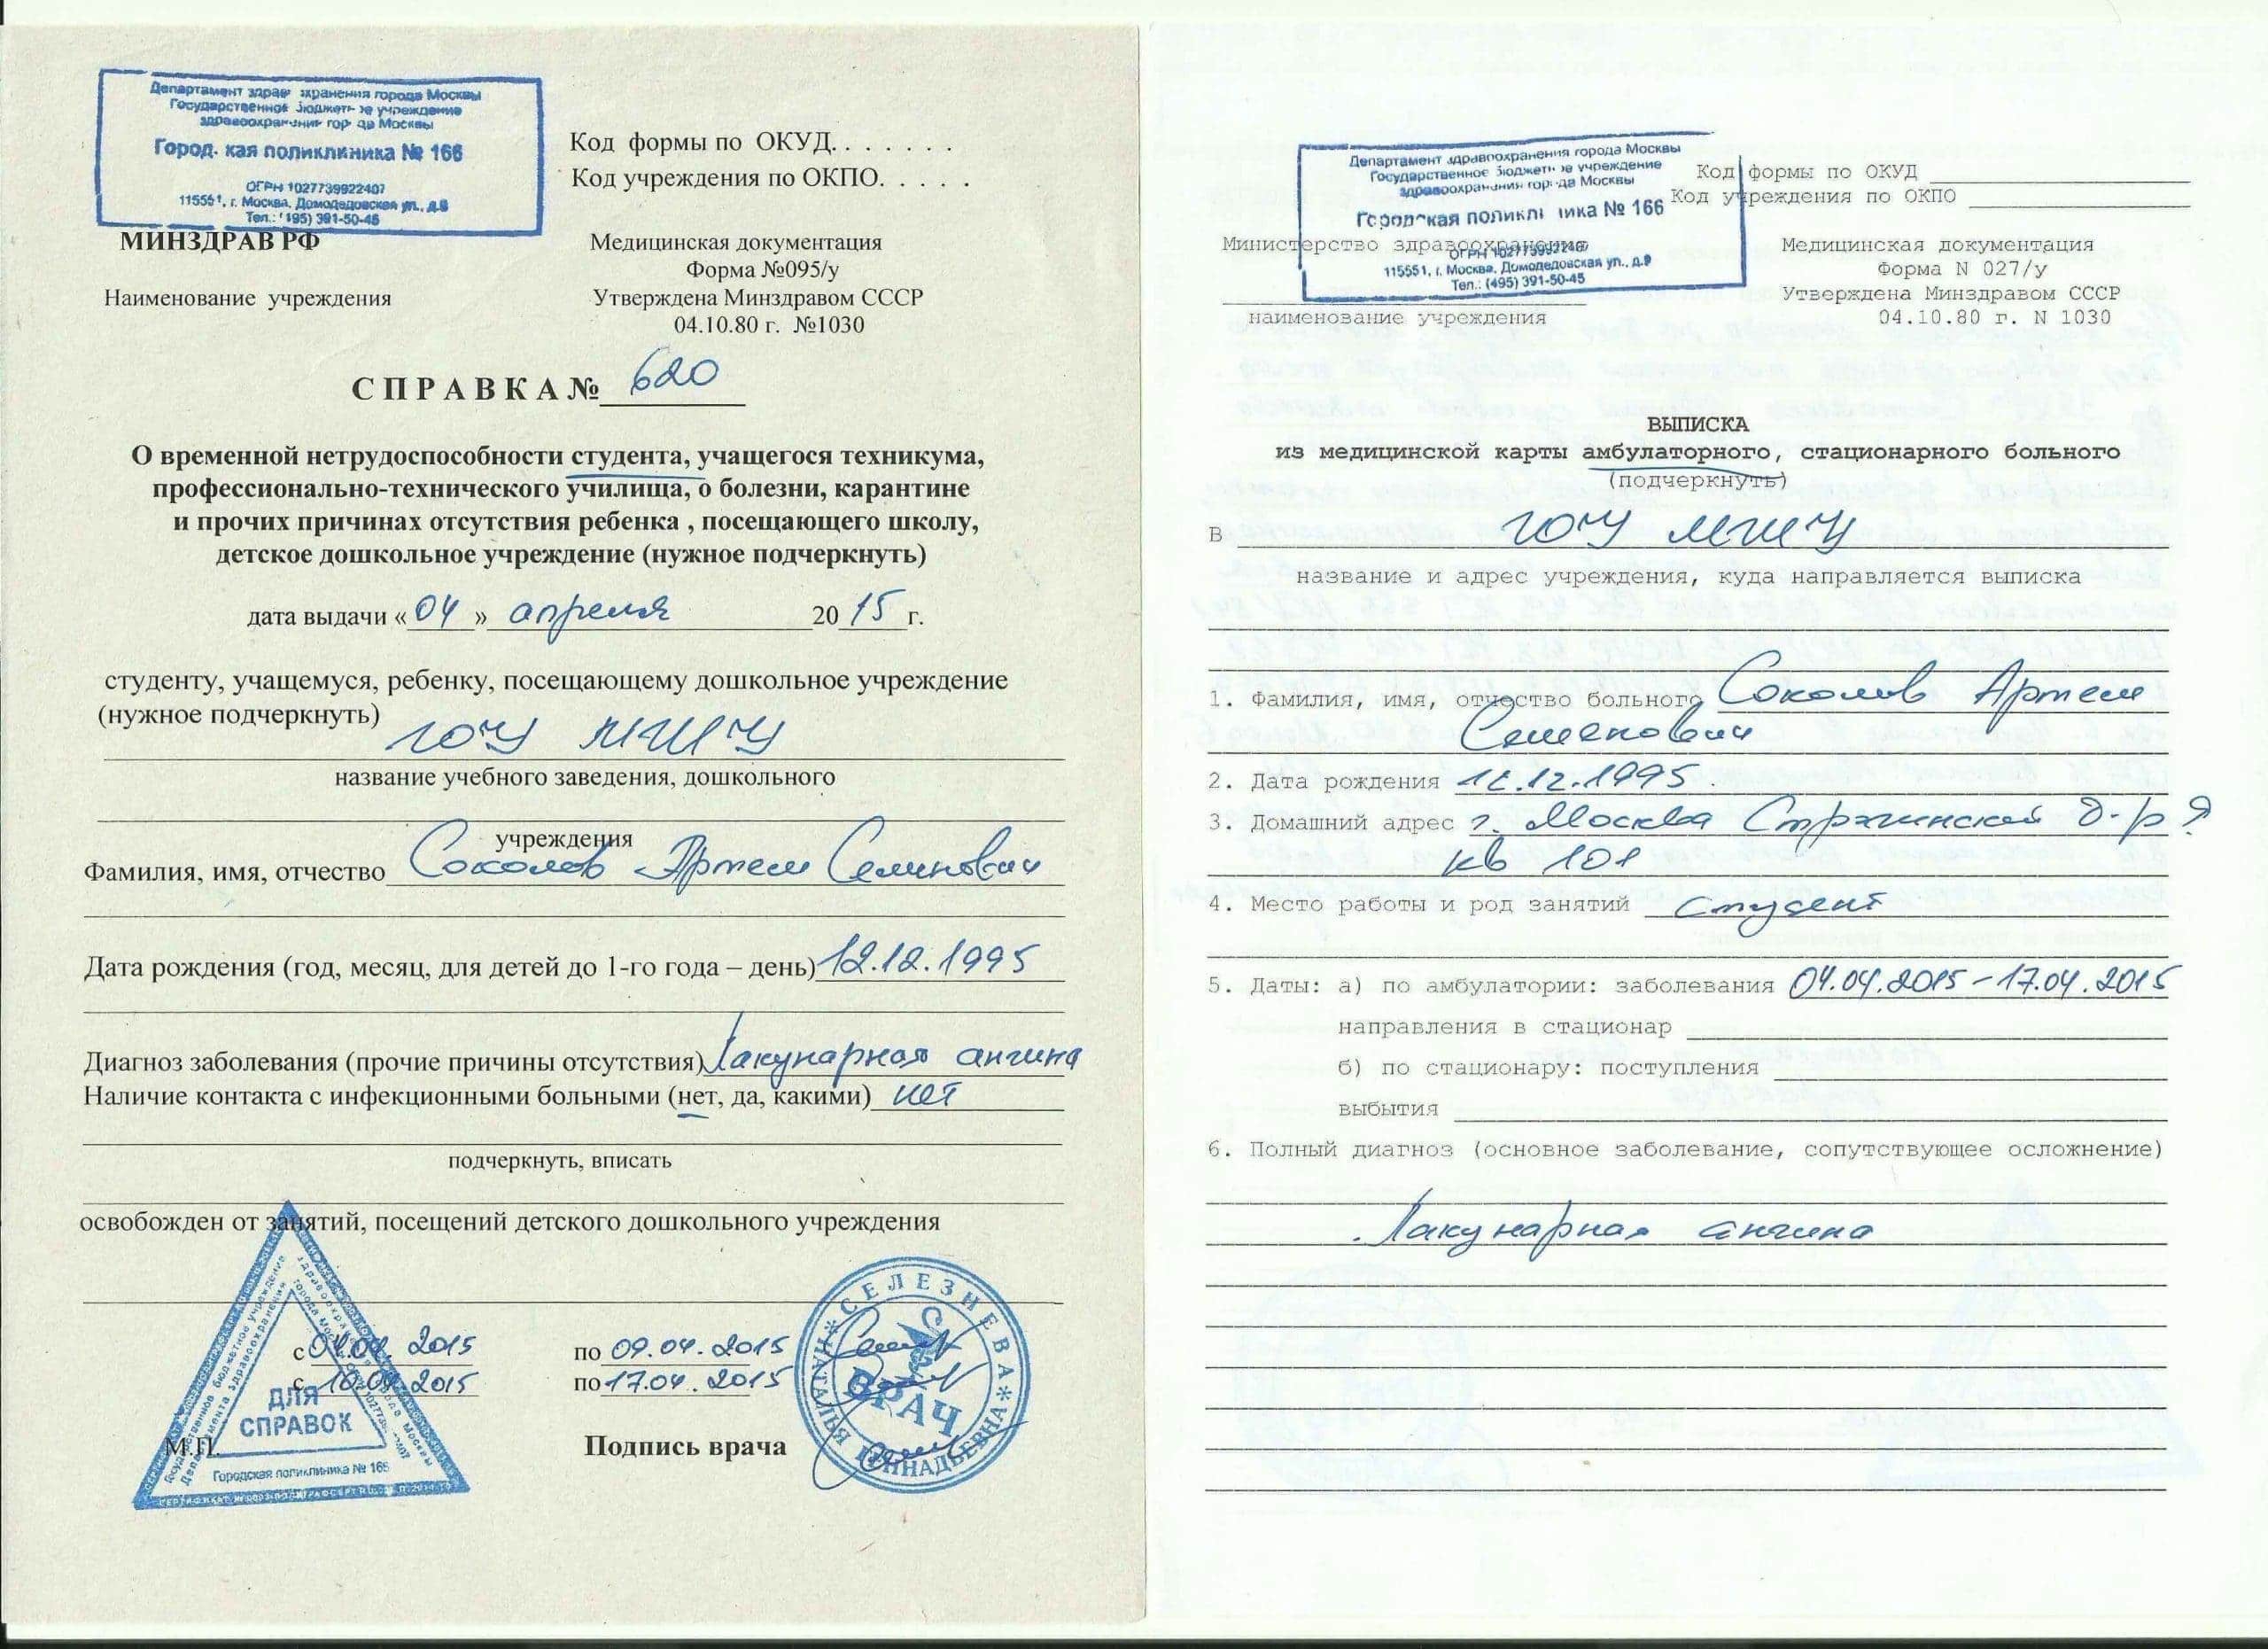 Департамент здравоохранения города Москвы
Государственное бюджетное учреждение
здравоохранения города Москвы
Городская поликлиника № 166
ОГРН 1027739922407
115551, г. Москва, Домодедовская ул., д.9
Тел.: (495) 391-50-45
Код формы по ОКУД. . . . . . .
Код учреждения по ОКПО. . . . .
МИНЗДРАВ РФ
Наименование учреждения
Медицинская документация
Форма №095/у
Утверждена Минздравом СССР
04.10.80 г. №1030
СПРАВКА № 620
О временной нетрудоспособности студента, учащегося техникума,
профессионально-технического училища, о болезни, карантине
и прочих причинах отсутствия ребенка , посещающего школу,
детское дошкольное учреждение (нужное подчеркнуть)
дата выдачи «04» апреля 2015 г.
студенту, учащемуся, ребенку, посещающему дошкольное учреждение
(нужное подчеркнуть)
ГОУ МГИУ
название учебного заведения, дошкольного
учреждения
Фамилия, имя, отчество Соколов Артем Семенович
Дата рождения (год, месяц, для детей до 1-го года – день) 12.12.1995
Диагноз заболевания (прочие причины отсутствия) Лакунарная ангина
Наличие контакта с инфекционными больными (нет, да, какими) нет
подчеркнуть, вписать
освобожден от занятий, посещений детского дошкольного учреждения
с 04.04. 2015 по 09.04. 2015
с 10.04 2015 по 17.04. 2015
М.П.
Подпись врача
ДЛЯ
СПРАВОК
Городская поликлиника № 166
СЕЛЕЗНЕВА
НАТАЛЬЯ ГЕННАДЬЕВНА
ВРАЧ
Департамент здравоохранения города Москвы
Государственное бюджетное учреждение
здравоохранения города Москвы
Городская поликлиника № 166
ОГРН 1027739922407
115551, г. Москва, Домодедовская ул., д.9
Тел.: (495) 391-50-45
Код формы по ОКУД
Код учреждения по ОКПО
Министерство здравоохранения
наименование учреждения
Медицинская документация
Форма N 027/у
Утверждена Минздравом СССР
04.10.80 г. N 1030
ВЫПИСКА
из медицинской карты амбулаторного, стационарного больного
(подчеркнуть)
В ГОУ МГИУ
название и адрес учреждения, куда направляется выписка
1. Фамилия, имя, отчество больного Соколов Артем
Семенович
2. Дата рождения 12.12.1995.
3. Домашний адрес г. Москва б-р 9
кв 101
4. Место работы и род занятий студент
5. Даты: а) по амбулатории: заболевания 04.04.2015 – 17.04.2015
направления в стационар
б) по стационару: поступления
выбытия
6. Полный диагноз (основное заболевание, сопутствующее осложнение)
Лакунарная ангина